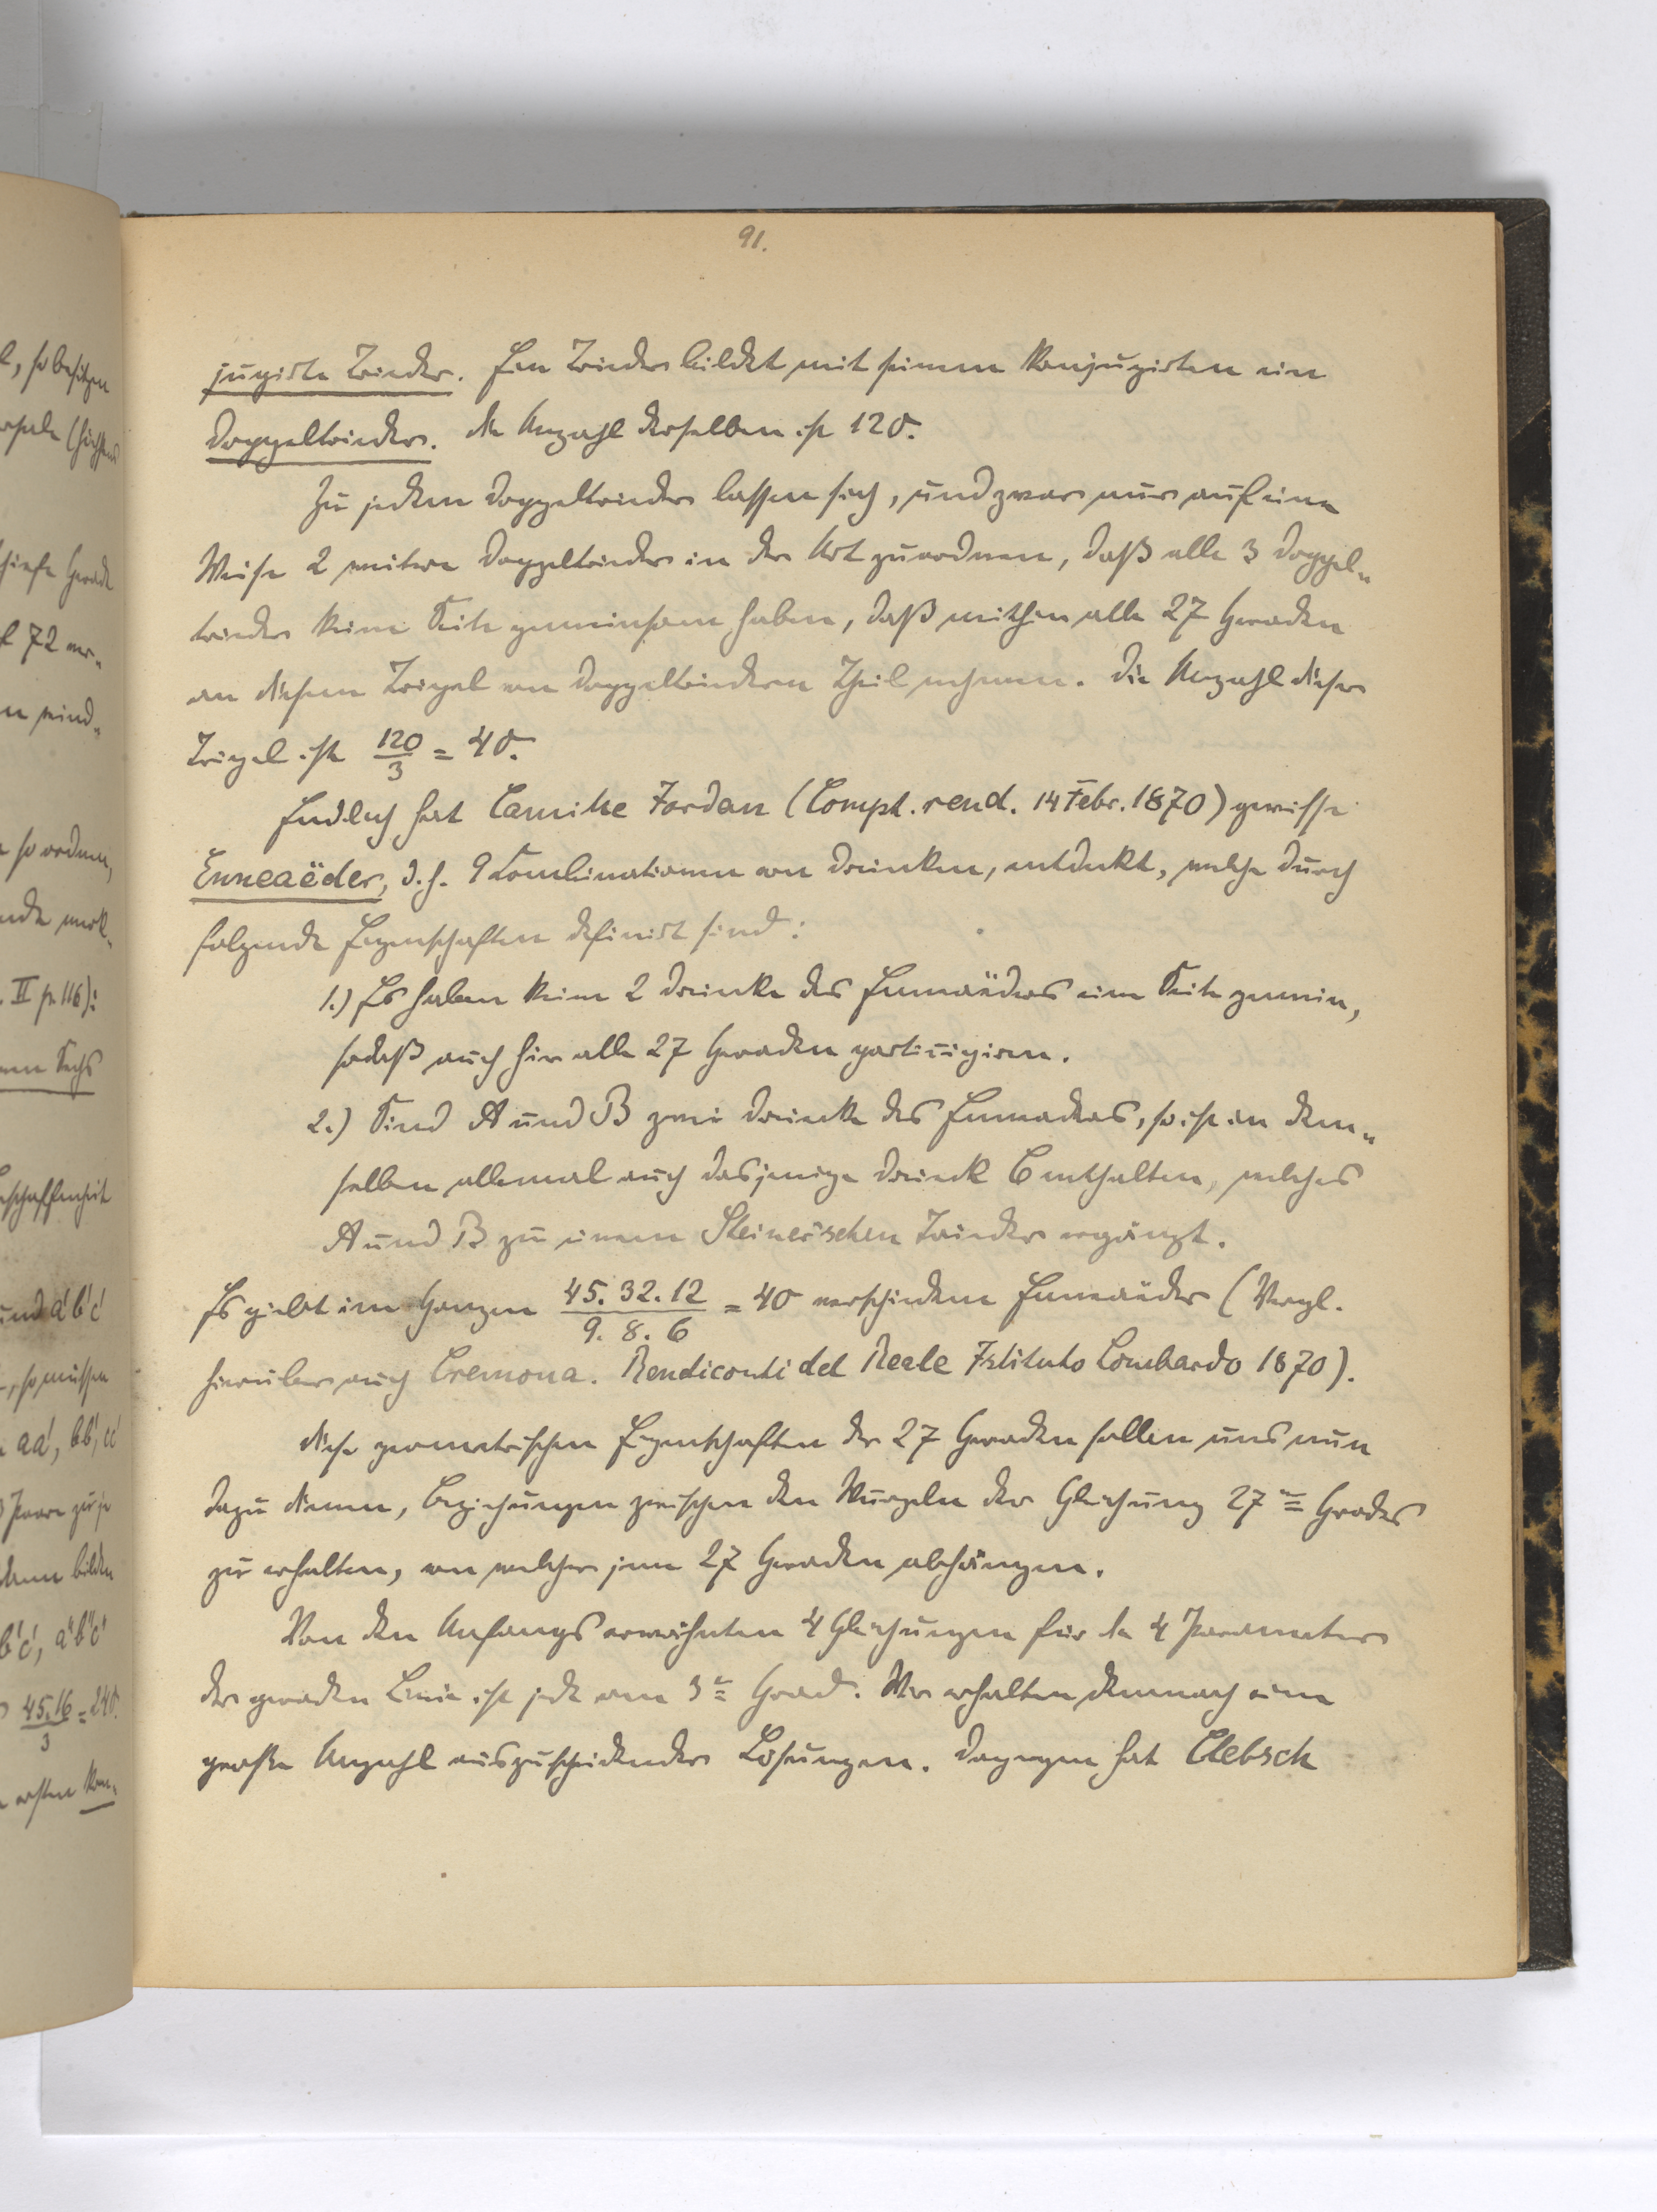 91.
jugirte Trieder. Ein Trieder bildet mit seinem Konjugirten ein
Doppeltrieder. Die Anzahl derselben ist 120.
Zu jedem Doppeltrieder lassen sich, und zwar nur auf eine
Weise 2 weitere Doppeltrieder in der Art zuordnen, daß alle 3 Doppel„
trieder keine Seite gemeinsam haben, daß mithin alle 27 Geraden
an diesem Tripel von Doppeltriedern Theil nehmen. Die Anzahl dieser
Tripel ist 120/3 = 40.
Endlich hat Camille Jordan (Compt. rend. 14 Febr. 1870) gewisse
Enneaëder, d.h. 9 Combinationen von Dreiecken, entdeckt, welche durch
folgende Eigenschaften definirt sind:
1.) Es haben keine 2 Dreiecke des Enneaëders eine Seite gemein,
sodaß auch hier alle 27 Geraden partizipiren.
2.) Sind A und B zwei Dreiecke des Enneaders, so ist in dem„
selben allemal auch dasjenige Dreieck C enthalten, welches
A und B zu einem Steiner'schen Trieder ergänzt.
Es giebt im Ganzen 45. 32. 12 / 9. 8. 6 = 40 verschiedene Enneaëder (Vergl.
hierüber auch Cremona. Rendiconti del Reale Istituto Lombardo 1870).
Diese geometrischen Eigenschaften der 27 Geraden sollen uns nun
dazu dienen, Beziehungen zwischen den Wurzeln der Gleichung 27ten Grades
zu erhalten, von welcher jene 27 Geraden abhängen.
Von den Anfangs erwähnten 4 Gleichungen für die 4 Parameter
der geraden Linie ist jede vom 3ten Grad. Wir erhalten demnach eine
große Anzahl auszuscheidender Lösungen. Dagegen hat Clebsch
l, so besitzen
schiefe Gerade
72 ver„
so ordnen,
II p. 116):
Sechs
und a'b'c'
, so müssen
aa', bb', cc'
3 Paare zu je
bilden
b'c', a''b''c''
45.16/3 = 240.
ersten kon„